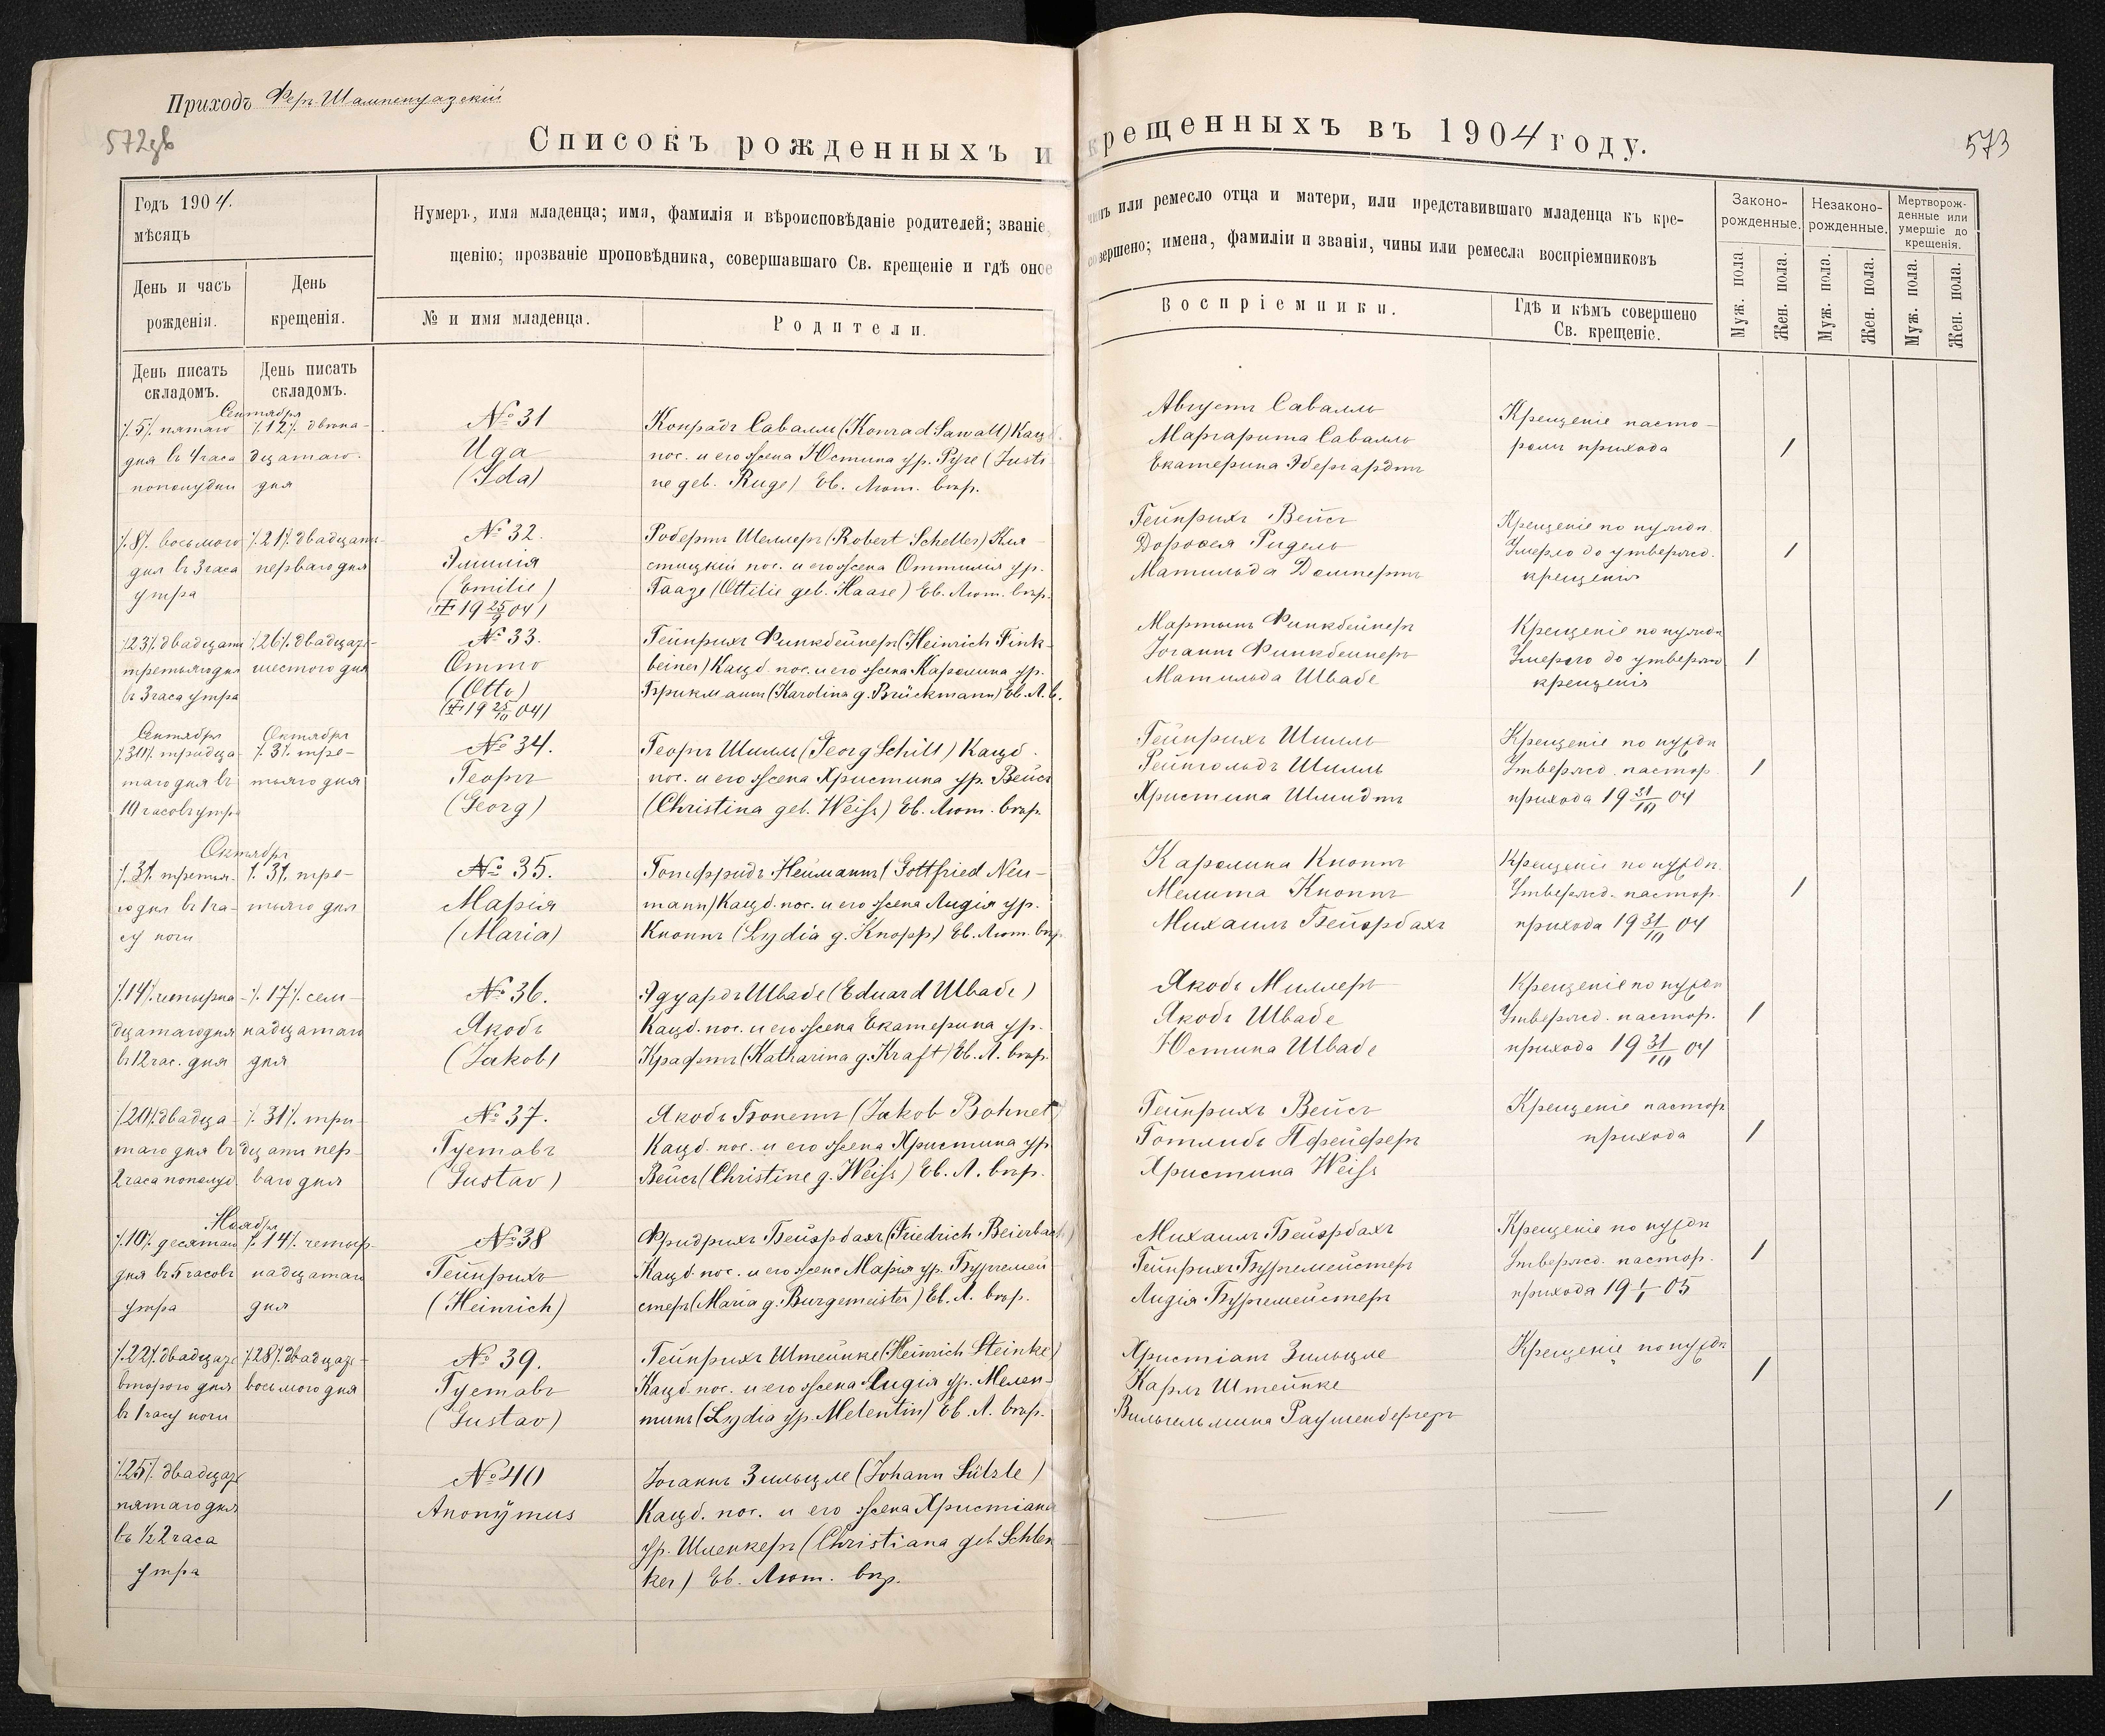 Приходъ Фер-Шампенуазскій
572 зв
573
Списокъ рожденныхъ и крещенныхъ въ 1904 году.
Годъ 1904.
мѣсяцъ
День и часъ
рожденія.
День
крещенія.
Нумеръ, имя младенца; имя, фамилія и вѣроисповѣданіе родителей; званіе, чинъ или ремесло отца и матери, или представившаго младенца къ кре-
щенію; прозваніе проповѣдника, совершавшаго Св. крещеніе и гдѣ оное совершено; имена, фамиліи и званія, чины или ремесла воспріемниковъ
№ и имя младенца.
Родители.
Воспріемники.
Гдѣ и кѣмъ совершено
Св. крещеніе.
Законно-
рожденные.
Незаконо-
рожденные.
Мертворож-
денные или
умершіе до
крещенія.
Муж. пола
Жен. пола.
Муж. пола.
Жен. пола.
Муж. пола.
Жен. пола.
День писать
складомъ.
День писать
складомъ.
Сентября
/.5/. пятаго
дня въ 4 часа
пополудни
/.12/. двѣна-
дцатаго
дня
№ 31
Ида
(Ida)
Конрадъ Савалл (Konrad Sawall) Кацб.
пос. и его жена Юстина ур. Руге (Justi
ne geb. Ruge) Ев. Лют. вѣр.
Августъ Савалль
Маргарита Савалль
Екатерина Эбергардтъ
Крещеніе пасто-
ромъ прихода
/
/.8/. восьмого
дня въ 3 часа
утра
/.21/. двадцать
перваго дня
№ 32.
Эмилія
(Emilie)
(† 19 25/9 04)
Робертъ Шеллеръ (Robert Scheller) Кля-
стицкій пос. и его жена Оттилія ур.
Гаазе (Ottilie geb. Haase) Ев. Лют. вѣр.
Гейнрихъ Вейсъ
Доротея Ридель
Матильда
Крещеніе по нуждѣ
Умерло до утвержд.
крещенія
/
/.23/. двадцать
третьяго дня
въ 3 часа утра
/.26/. двадцать
шестого дня
№ 33.
Отто
(Otto)
(† 19 25/10 04)
Гейнрихъ Финкбейнеръ (Heinrich Fink-
beiner) Кацб. пос. и его жена Каролина ур.
Брикманъ (Karolina g. Brückmann) Ев. Л. в.
Мартынъ Финкбейнеръ
Іоганнъ Финкбейнеръ
Матильда Швабе
Крещеніе по нуждѣ
Умерло до утвержд
крещенія
/
Сентября
/.30/. тридца-
таго дня въ
10 часовъ утра
Октября
/.3/. тре-
тьяго дня
№ 34.
Георгъ
(Georg)
Георгъ Шилль (Georg Schill) Кацб.
пос. и его жена Христина ур. Вейсъ
(Christina geb. Weiss) Ев. Лют. вѣр.
Гейнрихъ Шилль
Рейнгольдъ Шилль
Христина Шмидтъ
Крещеніе по нуждѣ
Утвержд. пастор.
прихода 19 31/10 04
/
Октября
/.3/. третья-
го дня въ 1 ча-
су ночи
/.3/. тре-
тьяго дня
№ 35.
Марія
(Maria)
Готфридъ Нейманъ (Gottfried Neu-
mann) Кацб. пос. и его жена Лидія ур.
Кноппъ (Lydia g. Knopp) Ев. Лют. вѣр
Каролина Кноппъ
Мелита Кноппъ
Михаилъ Бейэрбахъ
Крещеніе по нуждѣ
Утвержд. пастор.
прихода 19 31/10 04
/
/.14/. четырна-
дцатаго дня
въ 12 час. дня
/.17/. сем-
надцатаго
дня
№ 36.
Якобъ
(Jakob)
Эдуардъ Швабе (Eduard Швабе)
Кацб. пос. и его жена Екатерина ур.
Крафтъ (Katharina g. Kraft) Ев. Л. вѣр.
Якобъ Миллеръ
Якобъ Швабе
Юстина Швабе
Крещеніе по нуждѣ
Утвержд. пастор.
прихода 19 31/10 04
/
/.20/. двадца-
таго дня въ
2 часа пополуд.
/.31/. три-
дцать пер-
ваго дня
№ 37.
Густавъ
(Gustav)
Якобъ Бонетъ (Jakob Bohnet)
Кацб. пос. и его жена Христина ур
Вейсъ (Christine g. Weiss) Ев. Л. вѣр.
Гейнрихъ Вейсъ
Готлибъ Пфейферъ
Христина Weiss
Крещеніе пастор
прихода
/
Ноября
/.10/. десятаго
дня въ 5 часовъ
утра
/.14/. четыр-
надцатаго
дня
№ 38
Гейнрихъ
(Heinrich)
Фридрихъ Бейэрбахъ (Friedrich Beierbach)
Кацб. пос. и его жена Марія ур. Бургемей
стеръ (Maria g. Burgemeister) Ев. Л. вѣр.
Михаилъ Бейэрбахъ
Гейнрихъ Бургемейстеръ
Лидія Бургемейстеръ
Крещеніе по нуждѣ
Утвержд. пастор.
прихода 19 1/1 05
/
/.22/. двадцать
второго дня
въ 1 часу ночи
/.28/. двадцать
восьмого дня
№ 39.
Густавъ
(Gustav)
Гейнрихъ Штейнке (Heinrich Steinke)
Кацб. пос. и его жена Лидія ур. Мелен-
тинъ (Lydia ур. Melentin) Ев. Л. вѣр.
Христіанъ Зильцле
Карлъ Штейнке
Вильгельмина Раушенбергеръ
Крещеніе по нуждѣ
/
/.25/. двадцать
пятаго дня
въ ½2 часа
утра
№ 40
Anonymus
Іоганнъ Зильцле (Johann Sülzle)
Кацб. пос. и его жена Христіана
ур. Шленкеръ (Christiana geb Schlen
ker) Ев. Лют. вѣр.
/